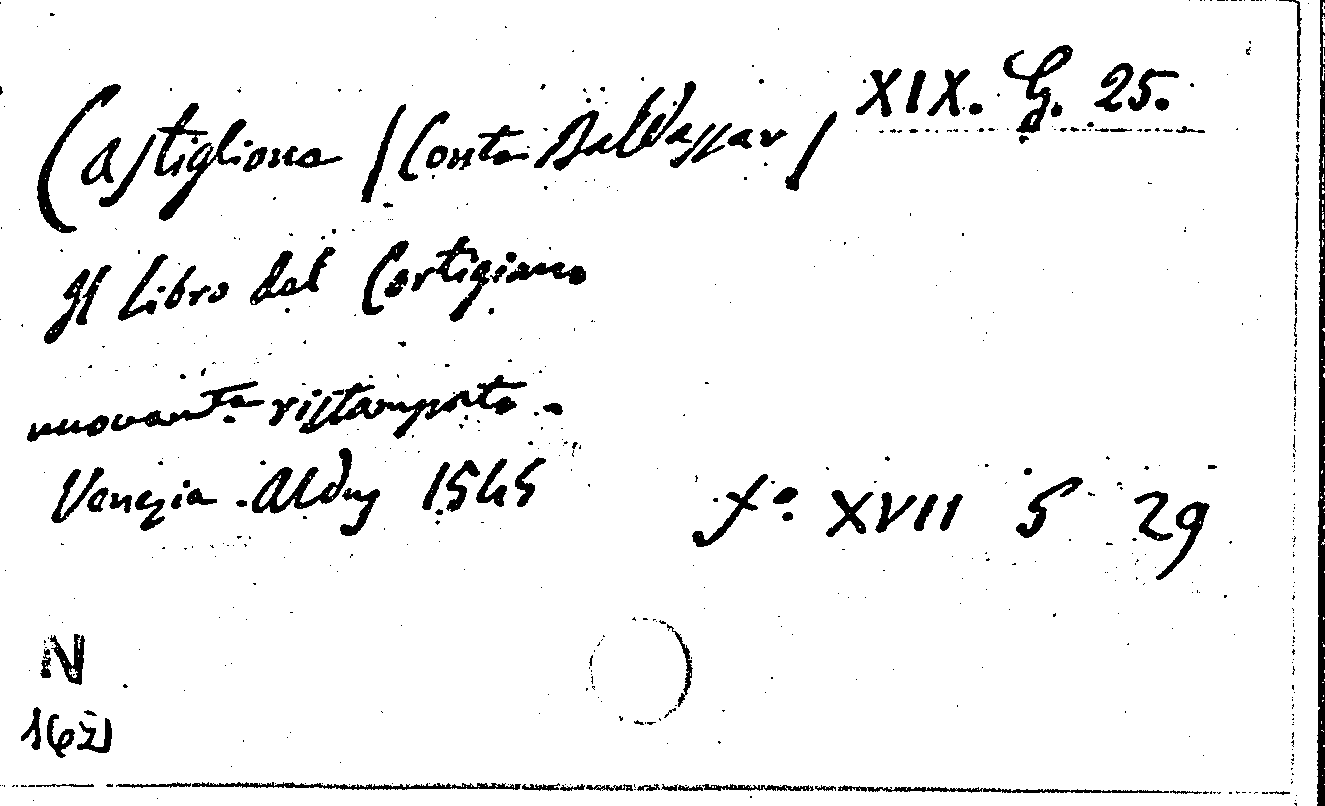 XIX. G. 25.
Castiglione / Conte Baldassar /
Il libro del Cortigiano
nuovamte ristampato.
Venezia. Aldus 1545
fo. XVII 5 29
N